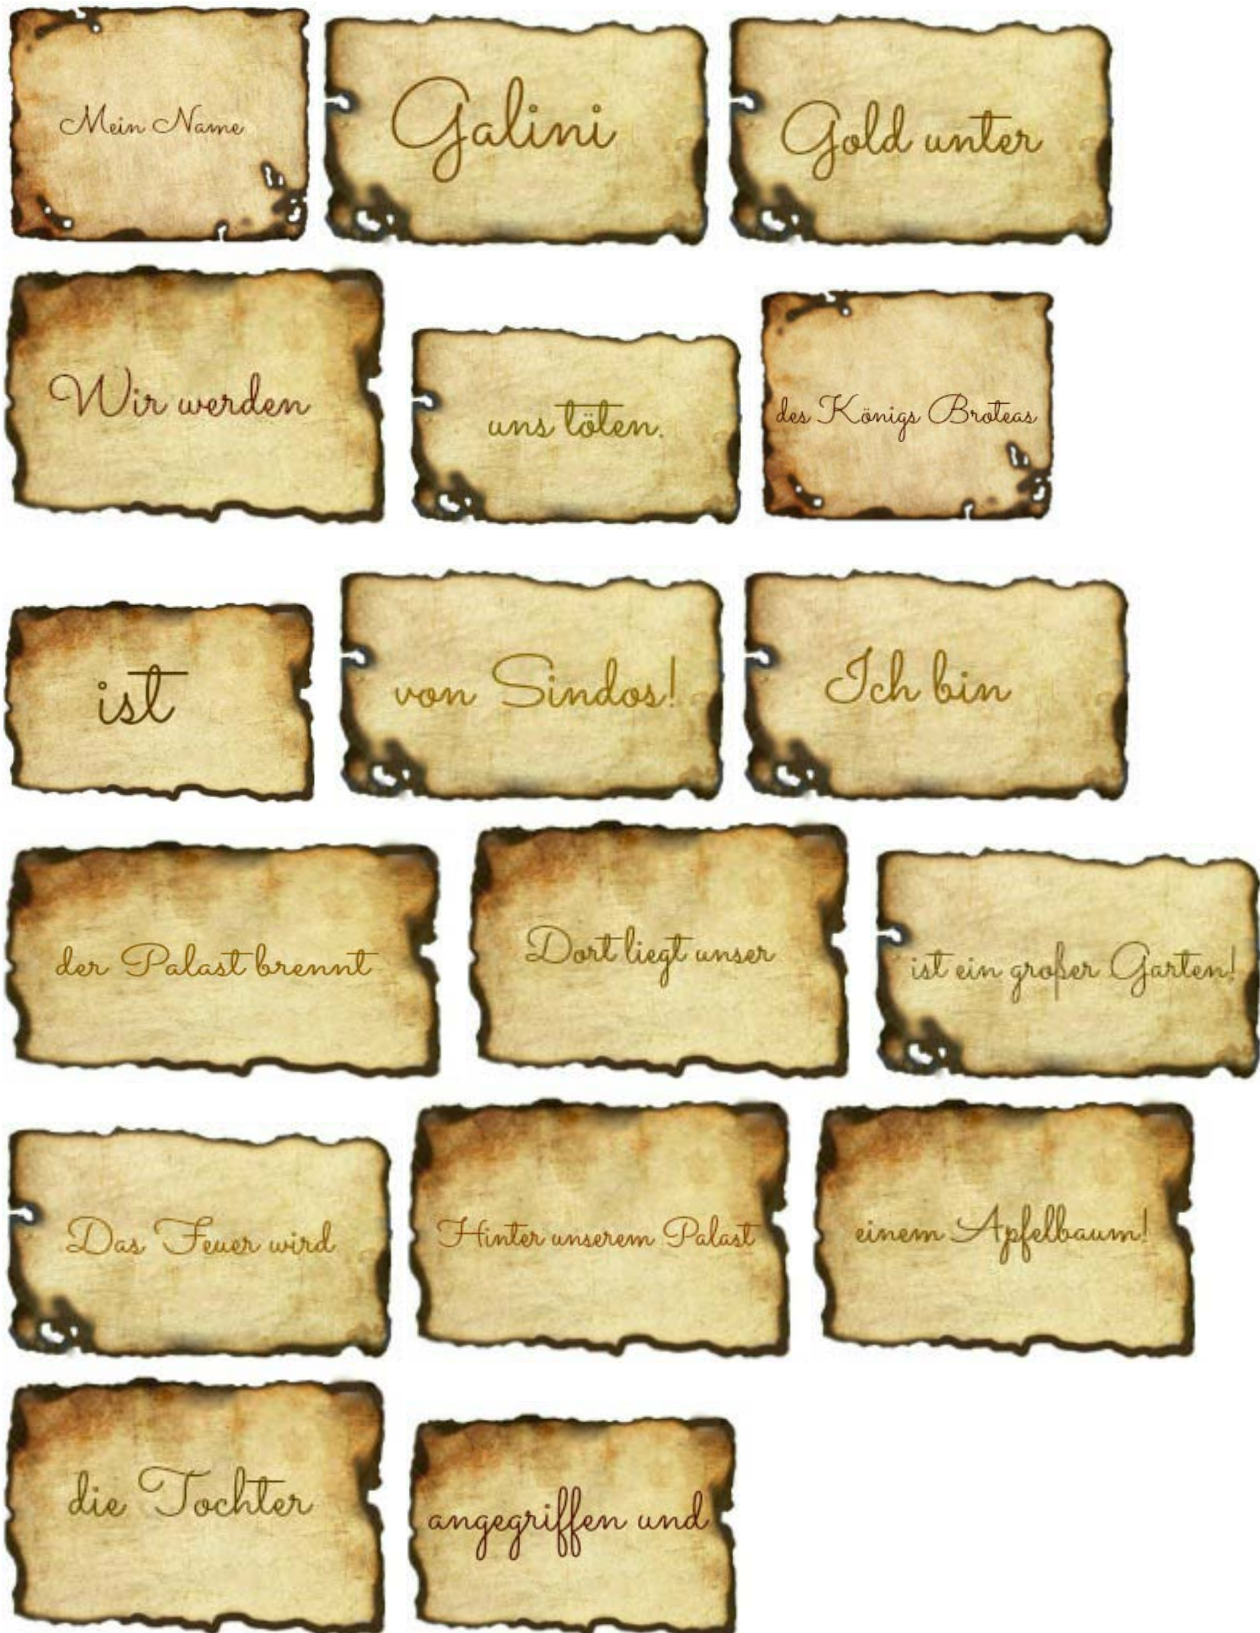 Mein Name
Galini
Gold unter
Wir werden
uns töten.
des Königs Broteas
ist
von Sindos!
Ich bin
der Palast brennt
Dort liegt unser
ist ein großer Garten!
Das Feuer wird
Hinter unserem Palast
einem Apfelbaum!
die Tochter
angegriffen und